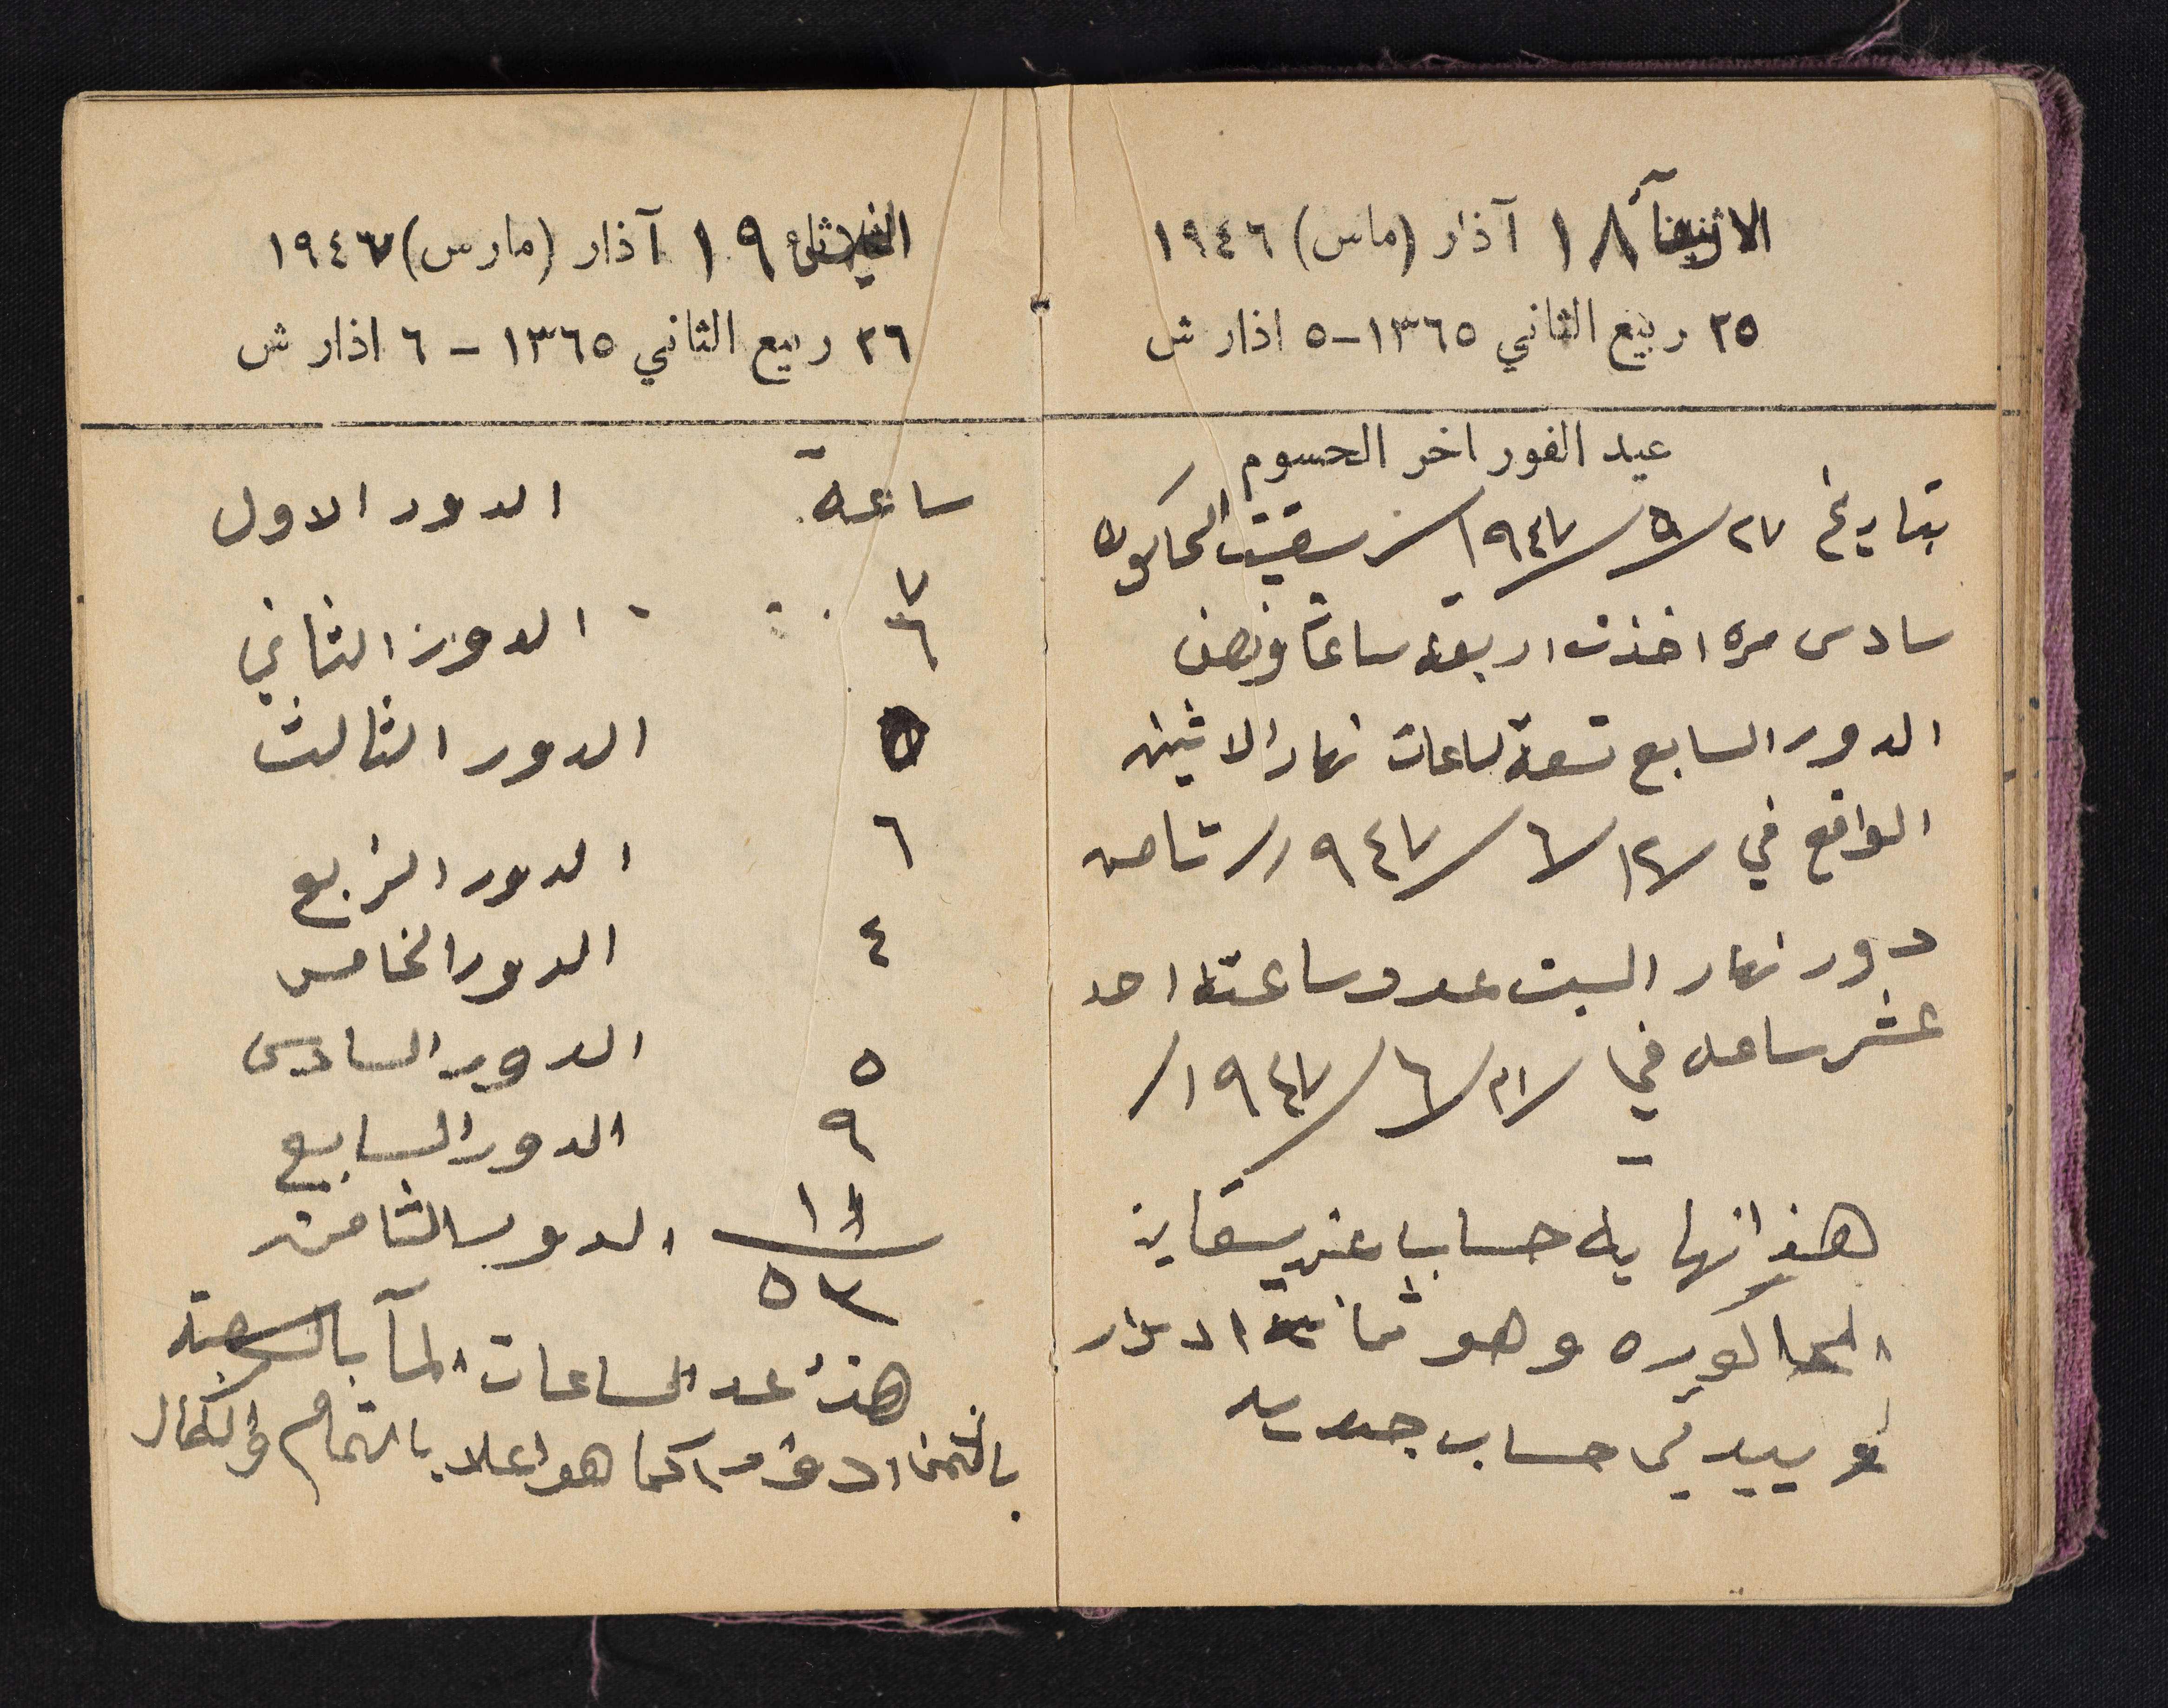 ١٨ آذار (مارس) ١٩٤٦
٢٥ ربيع الثاني ١٣٦٥-٥ اذار ش
عيد الفور اخر الحسوم
بتاريخ ٢٧/٥/١٩٤٧ سقيت الحاكوره
سادس مره اخذت اربعة ساعات ونصف
الدور السابع تسعة ساعات نهار الاثنين
الواقع في ١٢/٦/٩٤٧ ثامن
دور نهار السبت عدد ساعته احد
عشر ساعه في ٢١/٦/١٩٤٧
هذا نهاية حساب سقاية
الحاكوره وهو ثمانية ادوار
ويبدئ حساب جديد
الثلاثاء ١٩ آذار (مارس) ١٩٤٧
٢٦ ربيع الثاني ١٣٦٥ - ٦ اذار ش
ساعة الدور الاول
٧
٦ الدور الثاني
٥ الدور الثالث
٦ الدور الرابع
٤ الدور الخامس
٥ الدور السادس
٩ الدور السابع
١١ الدور الثامن
٥٣
هذا عدد الساعات المآ
بالثمن ادوار كما هو اعلا بالتمام والكمال